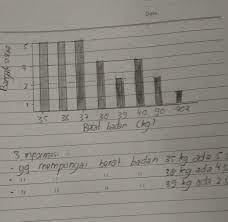 Date
5
4
3
2
1
35 36 37 38 39 40 90
Berat badan (kg)
3 informasi :
- yg mempunyai berat badan 35 kg ada 5
- " " " " 38 kg ada 4
- " " " " 39 kg ada 2